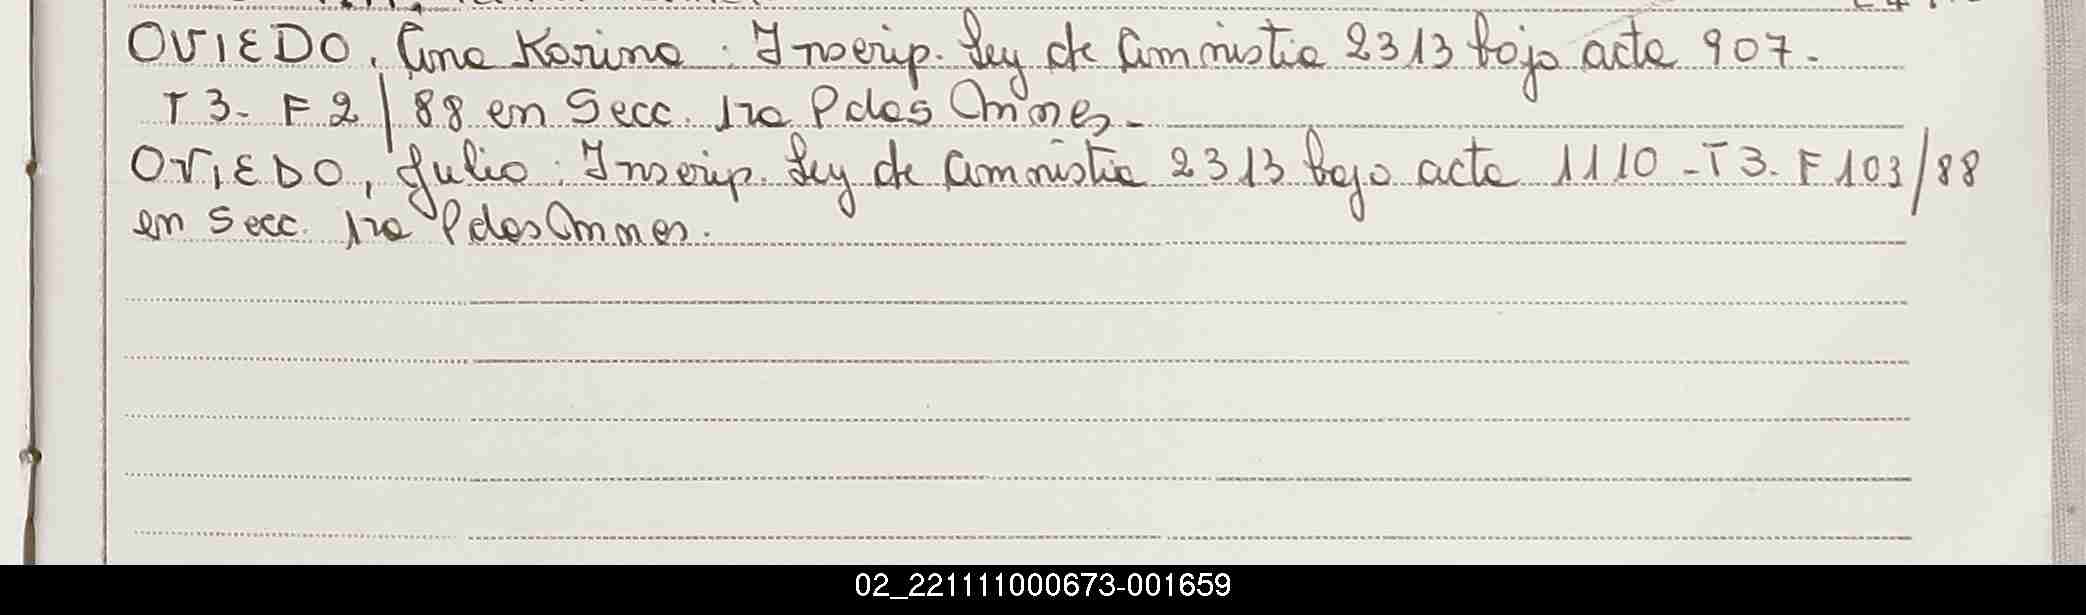 OVIEDO, Ana Karina: Inscrip. Ley de Amnistia 2313 bajo acta 907.
T3- F2/88 en Secc. 1ra Pdas Omnes-
OVIEDO, Julio: Inscrip. Ley de Amnistia 2313 bajo acta 1110 -T3- F103/88
en Secc. 1ra Pdas Omnes.
02_221111000673-001659